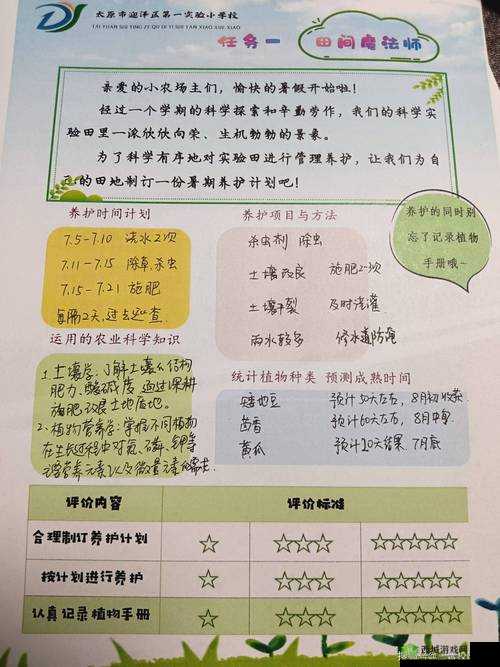 太原市迎泽区第一实验小学校
TAI YUAN SHI YING ZE QU DI YI SHI YAN XIAO XUE XIAO
任务一 田间魔法师
亲爱的小农场主们，愉快的暑假开始啦！
经过一个学期的科学探索和辛勤劳作，我们的科学实
验田里一派欣欣向荣、生机勃勃的景象。
为了科学有序地对实验田进行管理养护，让我们为自
己的田地制订一份暑期养护计划吧！
养护时间计划
7.5-7.10 浇水2次
7.11-7.15 除草,杀虫
7.15-7.21 施肥
每隔2天,过去巡查.
养护项目与方法
杀虫剂 除虫
土壤改良 施肥2次
土壤干裂 及时浇灌
雨水较多 修水道防淹
养护的同时别
忘了记录植物
手册哦~
运用的农业科学知识
1.土壤学,了解土壤的结构
肥力、酸碱度 通过深耕
施肥改良土地质地.
2.植物营养学:掌握不同植物
在生长过程中对氮、磷、钾等
主要营养元素以及微量元素的需求.
统计植物种类 预测成熟时间
矮地豆 预计50天左右,8月初收获
茴香 预计60天左右,8月中旬
黄瓜 预计20天结果 7月底
评价内容 评价标准
合理制订养护计划 ☆ ☆☆☆ ☆☆☆☆☆
按计划进行养护 ☆ ☆☆☆ ☆☆☆☆☆
认真记录植物手册 ☆ ☆☆☆ ☆☆☆☆☆
西城游戏网